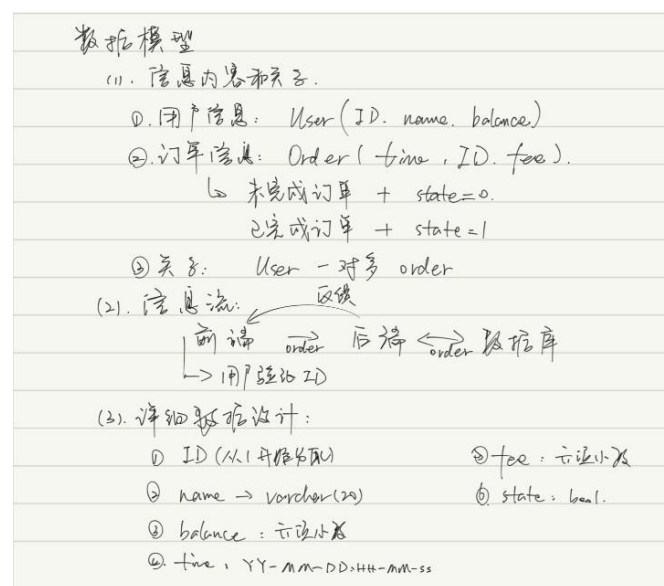 数据模型
(1). 信息内容和关系.
①. 用户信息: User(ID. name. balance)
②. 订单信息: Order( time , ID. fee).
↳ 未完成订单 + state=0.
已完成订单 + state=1
③ 关系: User 一对多 order
(2). 信息流:
反馈
前端 → order 后端 ↔ order 数据库
↳ 用户验证 ID
(3). 详细数据设计:
① ID (从1开始分配)
⑤ fee: 六位小数
② name → varchar(20)
⑥. state: bool.
③ balance: 六位小数
④. time, YY-MM-DD:HH-MM-SS